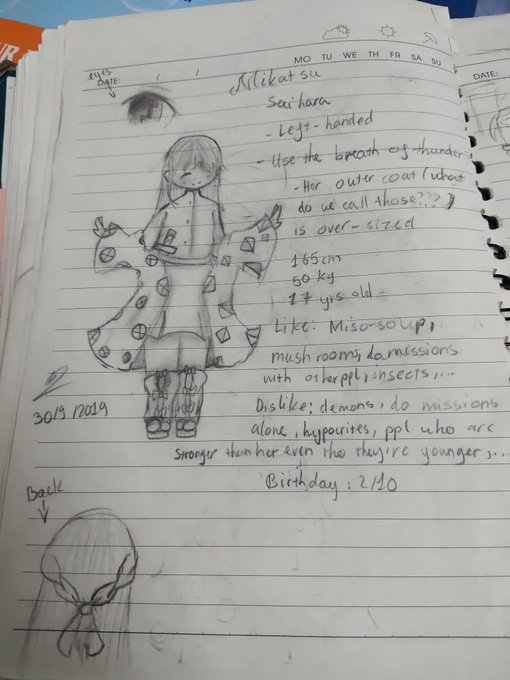 MO TU WE TH FR SA SU
eyes
DATE: / /
DATE:
Mikatsu
Saihara
- Left-handed
- Use the breath of thunder
- Her outer coat (what
do we call those???)
is over-sized
165cm
50 kg
17 yrs old
Like: Miso-soup,
mushrooms, do missions
with other ppl, insects,...
Dislike: demons, do missions
alone, hypocrites, ppl who are
stronger than her even tho they're younger,...
Birthday: 2/10
30/9/2019
Back